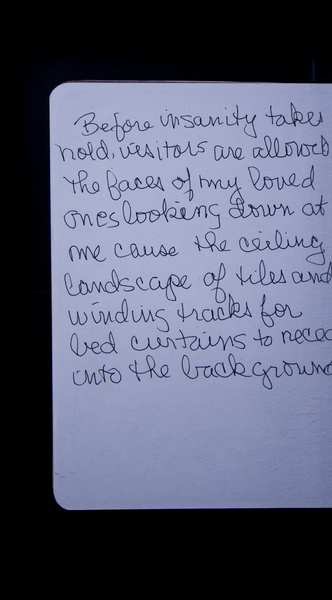 Before insanity takes
hold, visitors are allowed
the faces of my loved
ones looking down at
me cause the ceiling
landscape of tiles and
winding tracks for
bed curtains to reced
into the background